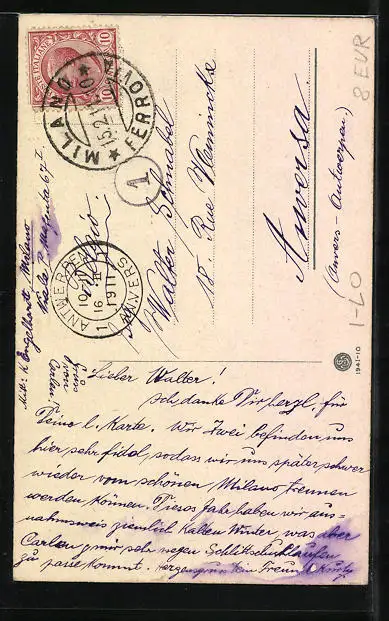 POSTE ITALIANE
10
MILANO
FERROVIA
15.2.11
1
Walter Schnabel
15 Rue Memincke
Anversa
(Anvers-Antwerpen)
8 EUR
1-LO
ANTWERPEN
16 II
1911
1 ANVERS
Mitt: K. Engelhardt, Milano
Viale P. Magenta 67 I
Gruss
von
Carlen!
1941-10
Lieber Walter!
Ich danke Dir herzl. für
Deine l. Karte. Wir zwei befinden uns
hier sehr fidel, sodass wir uns später schwer
wieder vom schönen Milano trennen
werden können. Dieses Jahr haben wir aus-
nahmsweis ziemlich kalten Winter, was aber
Carlen & mir sehr wegen Schlittschuhlaufen
zu passe kommt. Herzensgruss Dein Freund Kurt